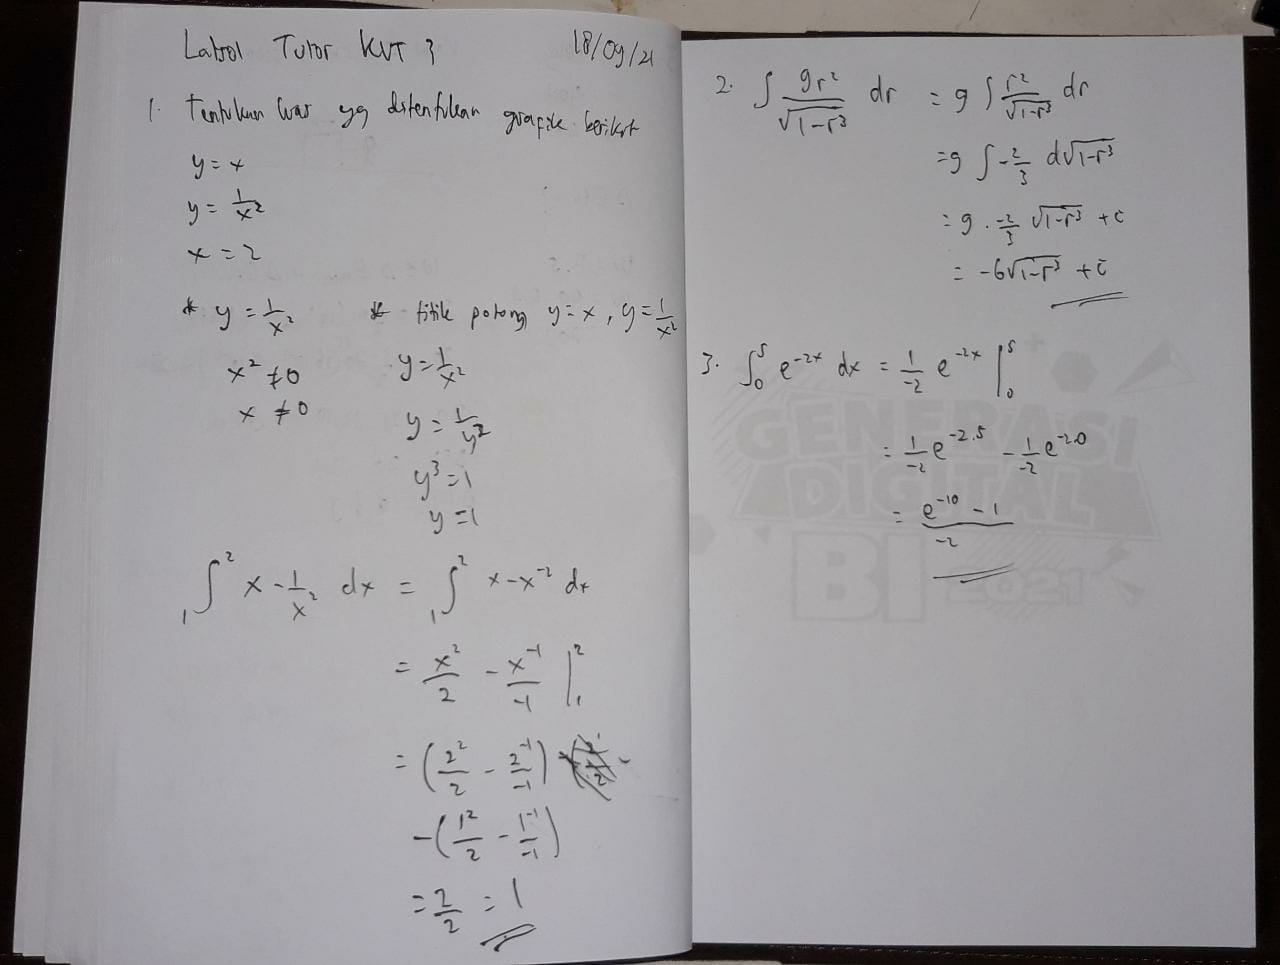 Labsol Tutor KVT 3 18/09/21
1. Tentukan luas yg ditentukan grafik berikut
y = x
y = 1/x²
x = 2
* y = 1/x² * titik potong y = x, y = 1/x²
x² ≠ 0 y = 1/x²
x ≠ 0 y = 1/y²
y³ = 1
y = 1
₁∫² x - 1/x² dx = ₁∫² x - x⁻² dx
= x²/2 - x⁻¹/-1 |₁²
= (2²/2 - 2⁻¹/-1) -
-(1²/2 - 1⁻¹/-1)
= 2/2 = 1
2. ∫ 9r²/√(1-r³) dr = 9 ∫ r²/√(1-r³) dr
= 9 ∫ -2/3 d√(1-r³)
= 9 . -2/3 √(1-r³) + c
= -6√(1-r³) + c
3. ∫₀⁵ e⁻²ˣ dx = 1/-2 e⁻²ˣ |₀⁵
= 1/-2 e^(-2.5) - 1/-2 e^(-2.0)
= (e⁻¹⁰ - 1)/-2
GENERASI
DIGITAL
BI 2021